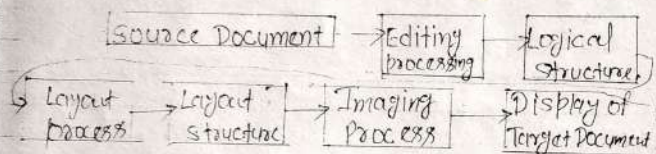 Source Document
Editing
processing
Logical
structure
Layout
process
Layout
structure
Imaging
Process
Display of
Target Document